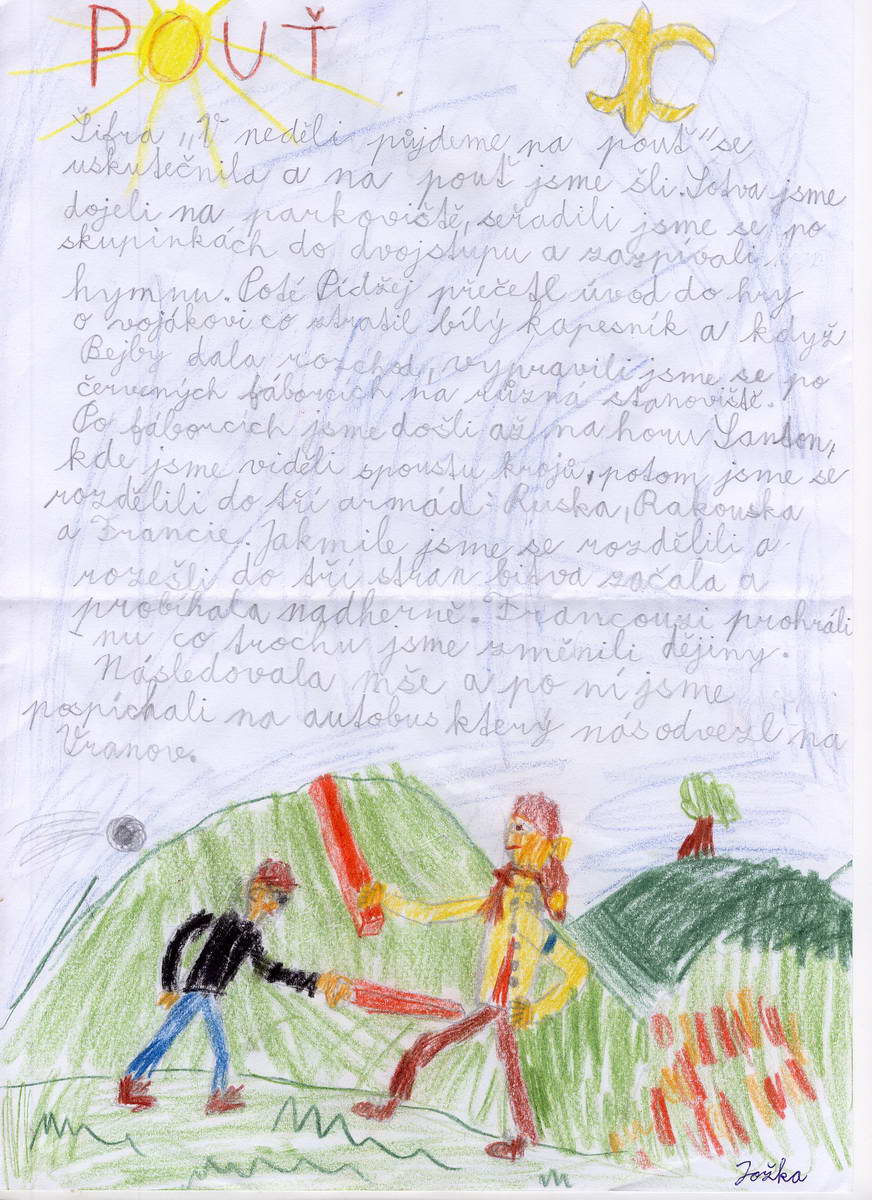 POUŤ
Šifra „V neděli půjdeme na pouť" se
uskutečnila a na pouť jsme šli. Sotva jsme
dojeli na parkoviště, seřadili jsme se po
skupinkách do dvojstupu a zazpívali
hymnu. Poté Pídžej přečetl úvod do hry
o vojákovi co ztratil bílý kapesník a když
Bejby dala rozchod, vypravili jsme se po
červených fáborcích na různá stanoviště.
Po fáborcích jsme došli až na horu Santon,
kde jsme viděli spoustu krojů, potom jsme se
rozdělili do tří armád: Ruska, Rakouska
a Francie. Jakmile jsme se rozdělili a
rozešli do tří stran bitva začala a
probíhala nádherně. Francouzi prohráli
nu co trochu jsme změnili dějiny.
Následovala mše a po ní jsme
pospíchali na autobus který nás odvezl na
Vranov.
Jožka